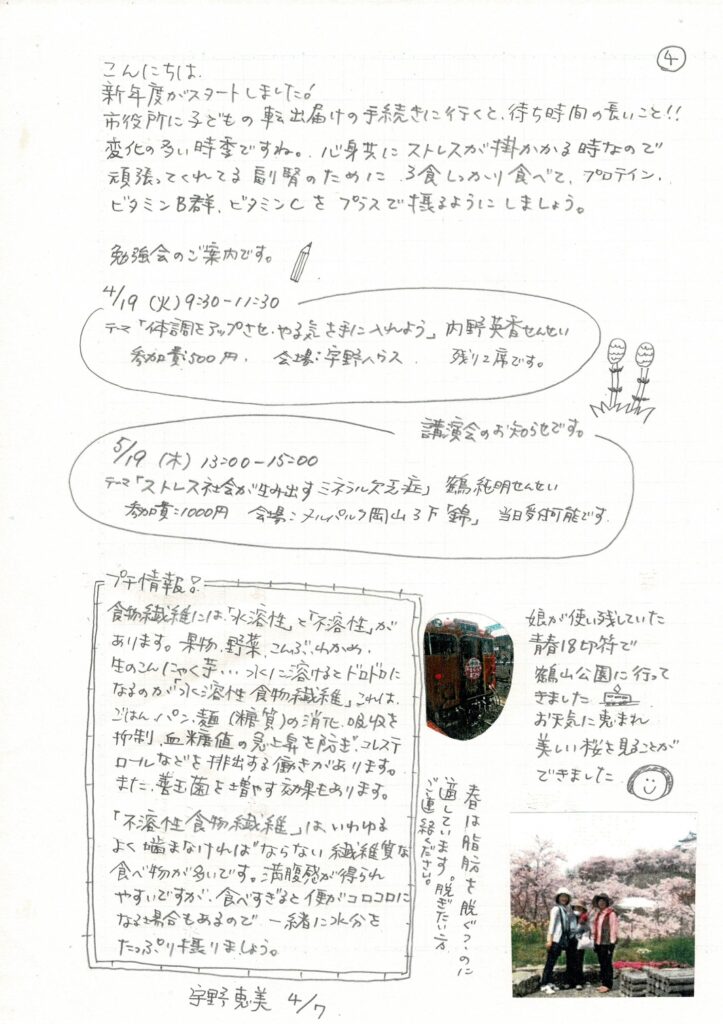 ④
こんにちは、
新年度がスタートしました!
市役所に子どもの転出届けの手続きに行くと、待ち時間の長いこと!!
変化の多い時季ですね。心身共にストレスが掛かかる時なので
頑張ってくれてる副腎のために、3食しっかり食べて、プロテイン、
ビタミンB群、ビタミンCをプラスで摂るようにしましょう。
勉強会のご案内です。
4/19 (火) 9:30-11:30
テーマ「体調をアップさせ、やる気を手に入れよう」内野英香せんせい
参加費:500円、会場:宇野ハウス、残り2席です。
講演会のお知らせです。
5/19 (木) 13:00-15:00
テーマ「ストレス社会が生み出すミネラル欠乏症」鶴純明せんせい
参加費:1000円 会場:メルパルク岡山3F「錦」 当日受付可能です。
プチ情報!
食物繊維には、「水溶性」と「不溶性」が
あります。果物、野菜、こんぶ、わかめ、
生のこんにゃく芋…水に溶けるとドロドロに
なるのが「水溶性食物繊維」これは、
ごはん、パン、麺(糖質)の消化、吸収を
抑制、血糖値の急上昇を防ぎ、コレステ
ロールなどを排出する働きがあります。
また、善玉菌を増やす効果もあります。
「不溶性食物繊維」は、いわゆる
よく噛まなければならない繊維質な
食べ物が多いです。満腹感が得られ
やすいですが、食べすぎると便がコロコロに
なる場合もあるので、一緒に水分を
たっぷり摂りましょう。
娘が使い残していた
青春18切符で
鶴山公園に行って
きました
お天気に恵まれ
美しい桜を見ることが
できました
春は脂肪を脱ぐ?のに
適しています。脱ぎたい方
ご連絡ください。
宇野恵美 4/7